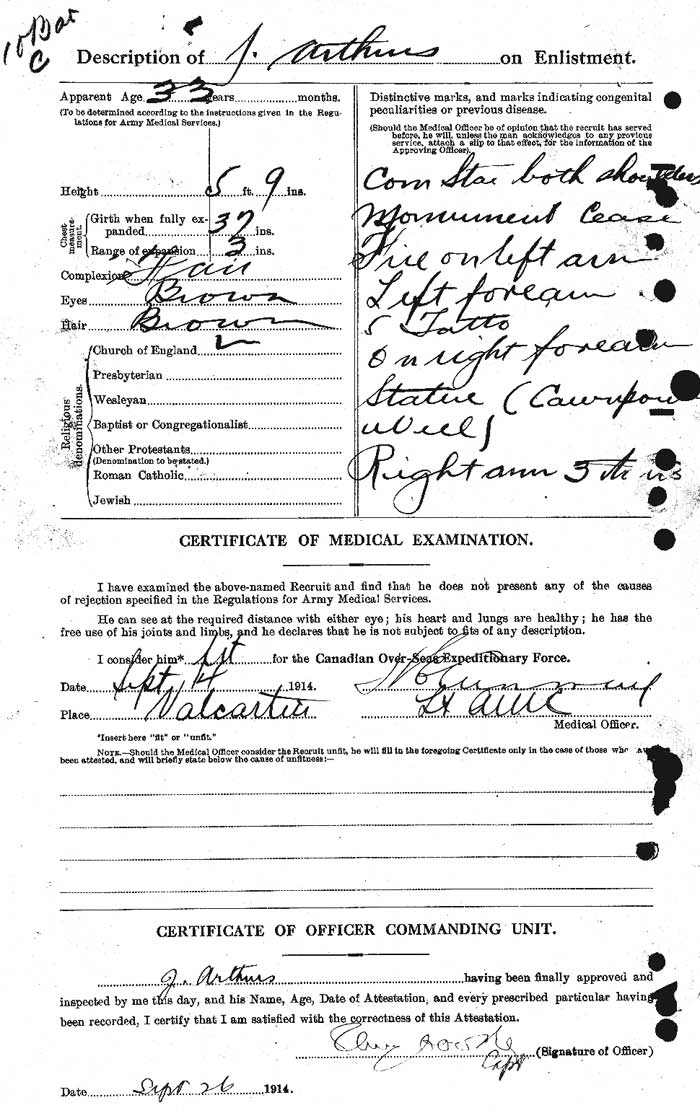 10 Bat
C
Description of J. Arthurs on Enlistment.
Apparent Age 33 years months.
(To be determined according to the instructions given in the Regu-
lations for Army Medical Services.)
Height 5 ft. 9 ins.
Chest measure-ment.
Girth when fully ex-
panded 37 ins.
Range of expansion 3 ins.
Complexion Fair
Eyes Brown
Hair Brown
Religious denominations.
Church of England
Presbyterian
Wesleyan
Baptist or Congregationalist
Other Protestants
(Denomination to be stated.)
Roman Catholic
Jewish
Distinctive marks, and marks indicating congenital
peculiarities or previous disease.
(Should the Medical Officer be of opinion that the recruit has served
before, he will, unless the man acknowledges to any previous
service, attach a slip to that effect, for the information of the
Approving Officer).
Star both shoulders
Monument
on left arm
Left forearm
5 Tatto
on right forearm
Statue (Cawnpore
Well)
Right arm 3
CERTIFICATE OF MEDICAL EXAMINATION.
I have examined the above-named Recruit and find that he does not present any of the causes
of rejection specified in the Regulations for Army Medical Services.
He can see at the required distance with either eye; his heart and lungs are healthy; he has the
free use of his joints and limbs, and he declares that he is not subject to fits of any description.
I consider him* fit for the Canadian Over-Seas Expeditionary Force.
Date Sept 14 1914.
Place Valcartier
Lt AMC
Medical Officer.
*Insert here "fit" or "unfit."
NOTE.—Should the Medical Officer consider the Recruit unfit, he will fill in the foregoing Certificate only in the case of those who
been attested, and will briefly state below the cause of unfitness:—
CERTIFICATE OF OFFICER COMMANDING UNIT.
J. Arthurs having been finally approved and
inspected by me this day, and his Name, Age, Date of Attestation, and every prescribed particular having
been recorded, I certify that I am satisfied with the correctness of this Attestation.
Capt (Signature of Officer)
Date Sept 26 1914.